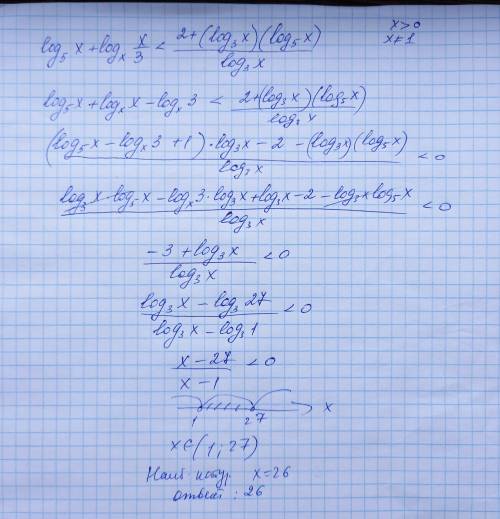 log₅ x + logₓ x/3 < (2 + (log₃ x)(log₅ x))/(log₃ x)
x > 0
x ≠ 1
log₅ x + logₓ x - logₓ 3 < (2 + (log₃ x)(log₅ x))/(log₃ x)
((log₅ x - logₓ 3 + 1) · log₃ x - 2 - (log₃ x)(log₅ x))/(log₃ x) < 0
(log₃ x · log₅ x - logₓ 3 · log₃ x + log₃ x - 2 - log₃ x log₅ x)/(log₃ x) < 0
(-3 + log₃ x)/(log₃ x) < 0
(log₃ x - log₃ 27)/(log₃ x - log₃ 1) < 0
(x - 27)/(x - 1) < 0
1 27 x
x ∈ (1; 27)
Наиб натур x = 26
ответ : 26